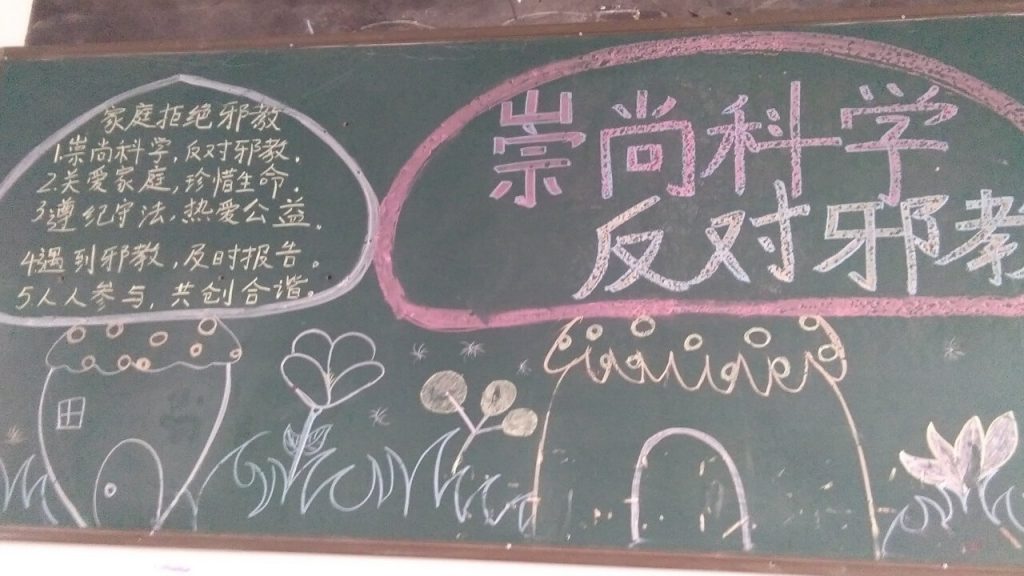 家庭拒绝邪教
1.崇尚科学,反对邪教.
2.关爱家庭,珍惜生命.
3遵纪守法,热爱公益.
4遇到邪教,及时报告.
5人人参与,共创合谐.
崇尚科学
反对邪教